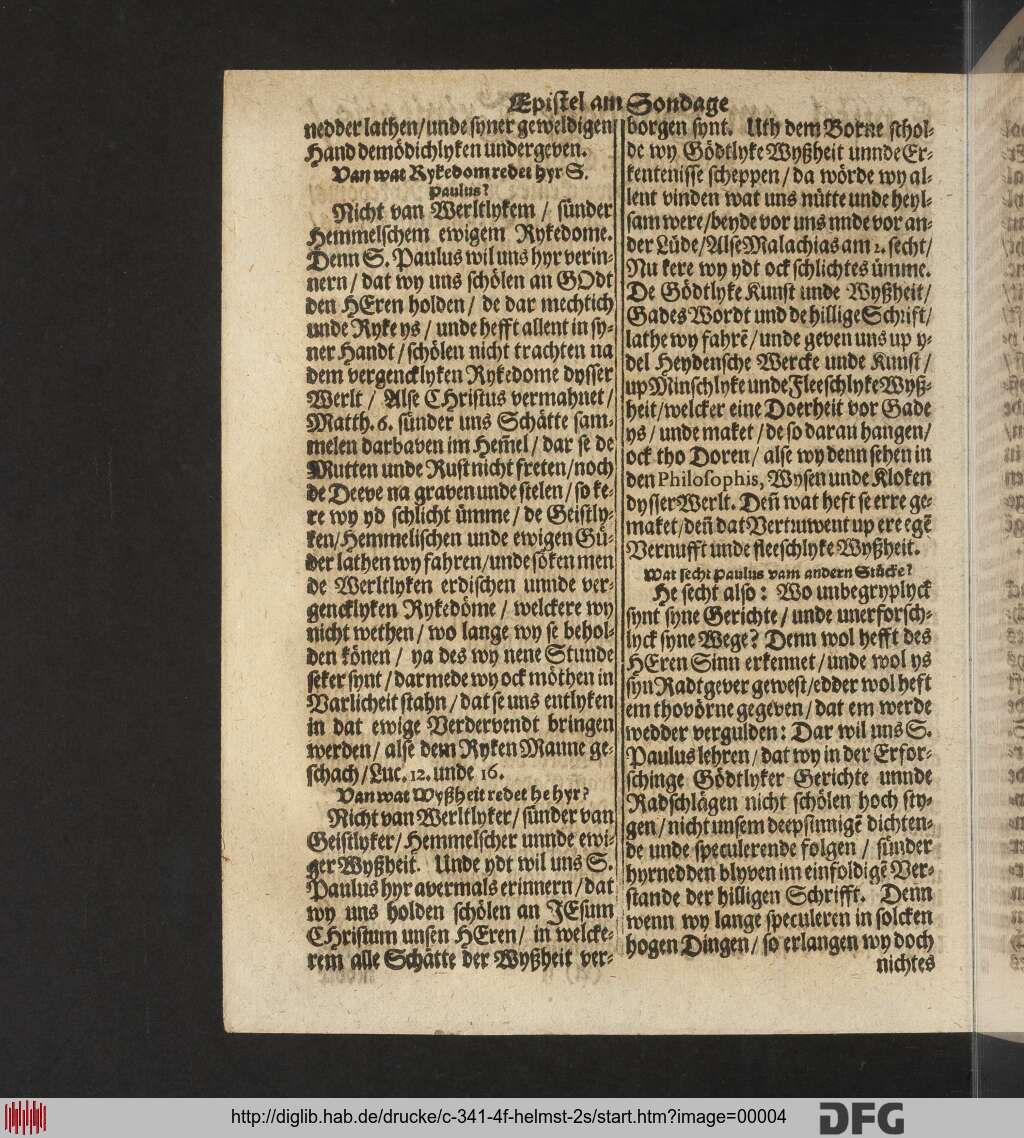 Epistel am Sondage
nedder lathen / unde syner geweldigen
Hand demödichlyken undergeven.
Van wat Rykedom redet hyr S.
Paulus?
Nicht van Werltlykem / sünder
Hemmelschem ewigem Rykedome.
Denn S. Paulus wil uns hyr verin-
nern / dat wy uns schölen an GOdt
den HEren holden / de dar mechtich
unde Ryke ys / unde hefft allent in sy-
ner Handt / schölen nicht trachten na
dem vergencklyken Rykedome dysser
Werlt / Alse CHristus vermahnet /
Matth. 6. sünder uns Schätte sam-
melen darbaven im Hem̃el / dar se de
Mutten unde Rust nicht freten / noch
de Deeve na graven unde stelen / so ke-
re wy yd schlicht ümme / de Geistly-
ken / Hemmelischen unde ewigen Gü-
der lathen wy fahren / unde söken men
de Werltlyken erdischen unnde ver-
gencklyken Rykedöme / welckere wy
nicht wethen / wo lange wy se behol-
den können / ya des wy nene Stunde
seker synt / dar mede wy ock möthen in
Varlicheit stahn / dat se uns entlyken
in dat ewige Verdervendt bringen
werden / alse dem Ryken Manne ge-
schach / Luc. 12. unde 16.
Van wat Wyßheit redet he hyr?
Nicht van Werltlyker / sünder van
Geistlyker / Hemmelscher unnde ewi-
ger Wyßheit. Unde ydt wil uns S.
Paulus hyr avermals erinnern / dat
wy uns holden schölen an JEsum
CHristum unsen HEren / in welcke-
rem alle Schätte der Wyßheit ver-
borgen synt. Uth dem Borne schol-
de wy Gödtlyke Wyßheit unnde Er-
kentenisse scheppen / da wörde wy al-
lent vinden wat uns nütte unde heyl-
sam were / beyde vor uns nnde vor an-
der Lüde / Alse Malachias am 2. secht /
Nu kere wy ydt ock schlichtes ümme.
De Gödtlyke Kunst unde Wyßheit /
Gades Wordt und de hillige Schrift /
lathe wy fahrẽ / unde geven uns up y-
del Heydensche Wercke unde Kunst /
up Minschlyke unde Fleeschlyke Wyß-
heit / welcker eine Doerheit vor Gade
ys / unde maket / de so daran hangen /
ock tho Doren / alse wy denn sehen in
den Philosophis, Wysen unde Kloken
dysser Werlt. Deñ wat heft se erre ge-
maket / deñ dat Vertruwent up ere egẽ
Vernufft unde fleeschlyke Wyßheit.
Wat secht Paulus vam andern Stücke?
He secht also: Wo unbegryplyck
synt syne Gerichte / unde unerforsch-
lyck syne Wege? Denn wol hefft des
HEren Sinn erkennet / unde wol ys
syn Radtgever gewest / edder wol heft
em thovörne gegeven / dat em werde
wedder vergulden: Dar wil uns S.
Paulus lehren / dat wy in der Erfor-
schinge Gödtlyker Gerichte unnde
Radschlägen nicht schölen hoch sty-
gen / nicht unsem deepsinnigẽ dichten-
de unde speculerende folgen / sünder
hyrnedden blyven im einfoldigẽ Ver-
stande der hilligen Schrifft. Denn
wenn wy lange speculeren in solcken
hogen Dingen / so erlangen wy doch
nichtes
http://diglib.hab.de/drucke/c-341-4f-helmst-2s/start.htm?image=00004
DFG